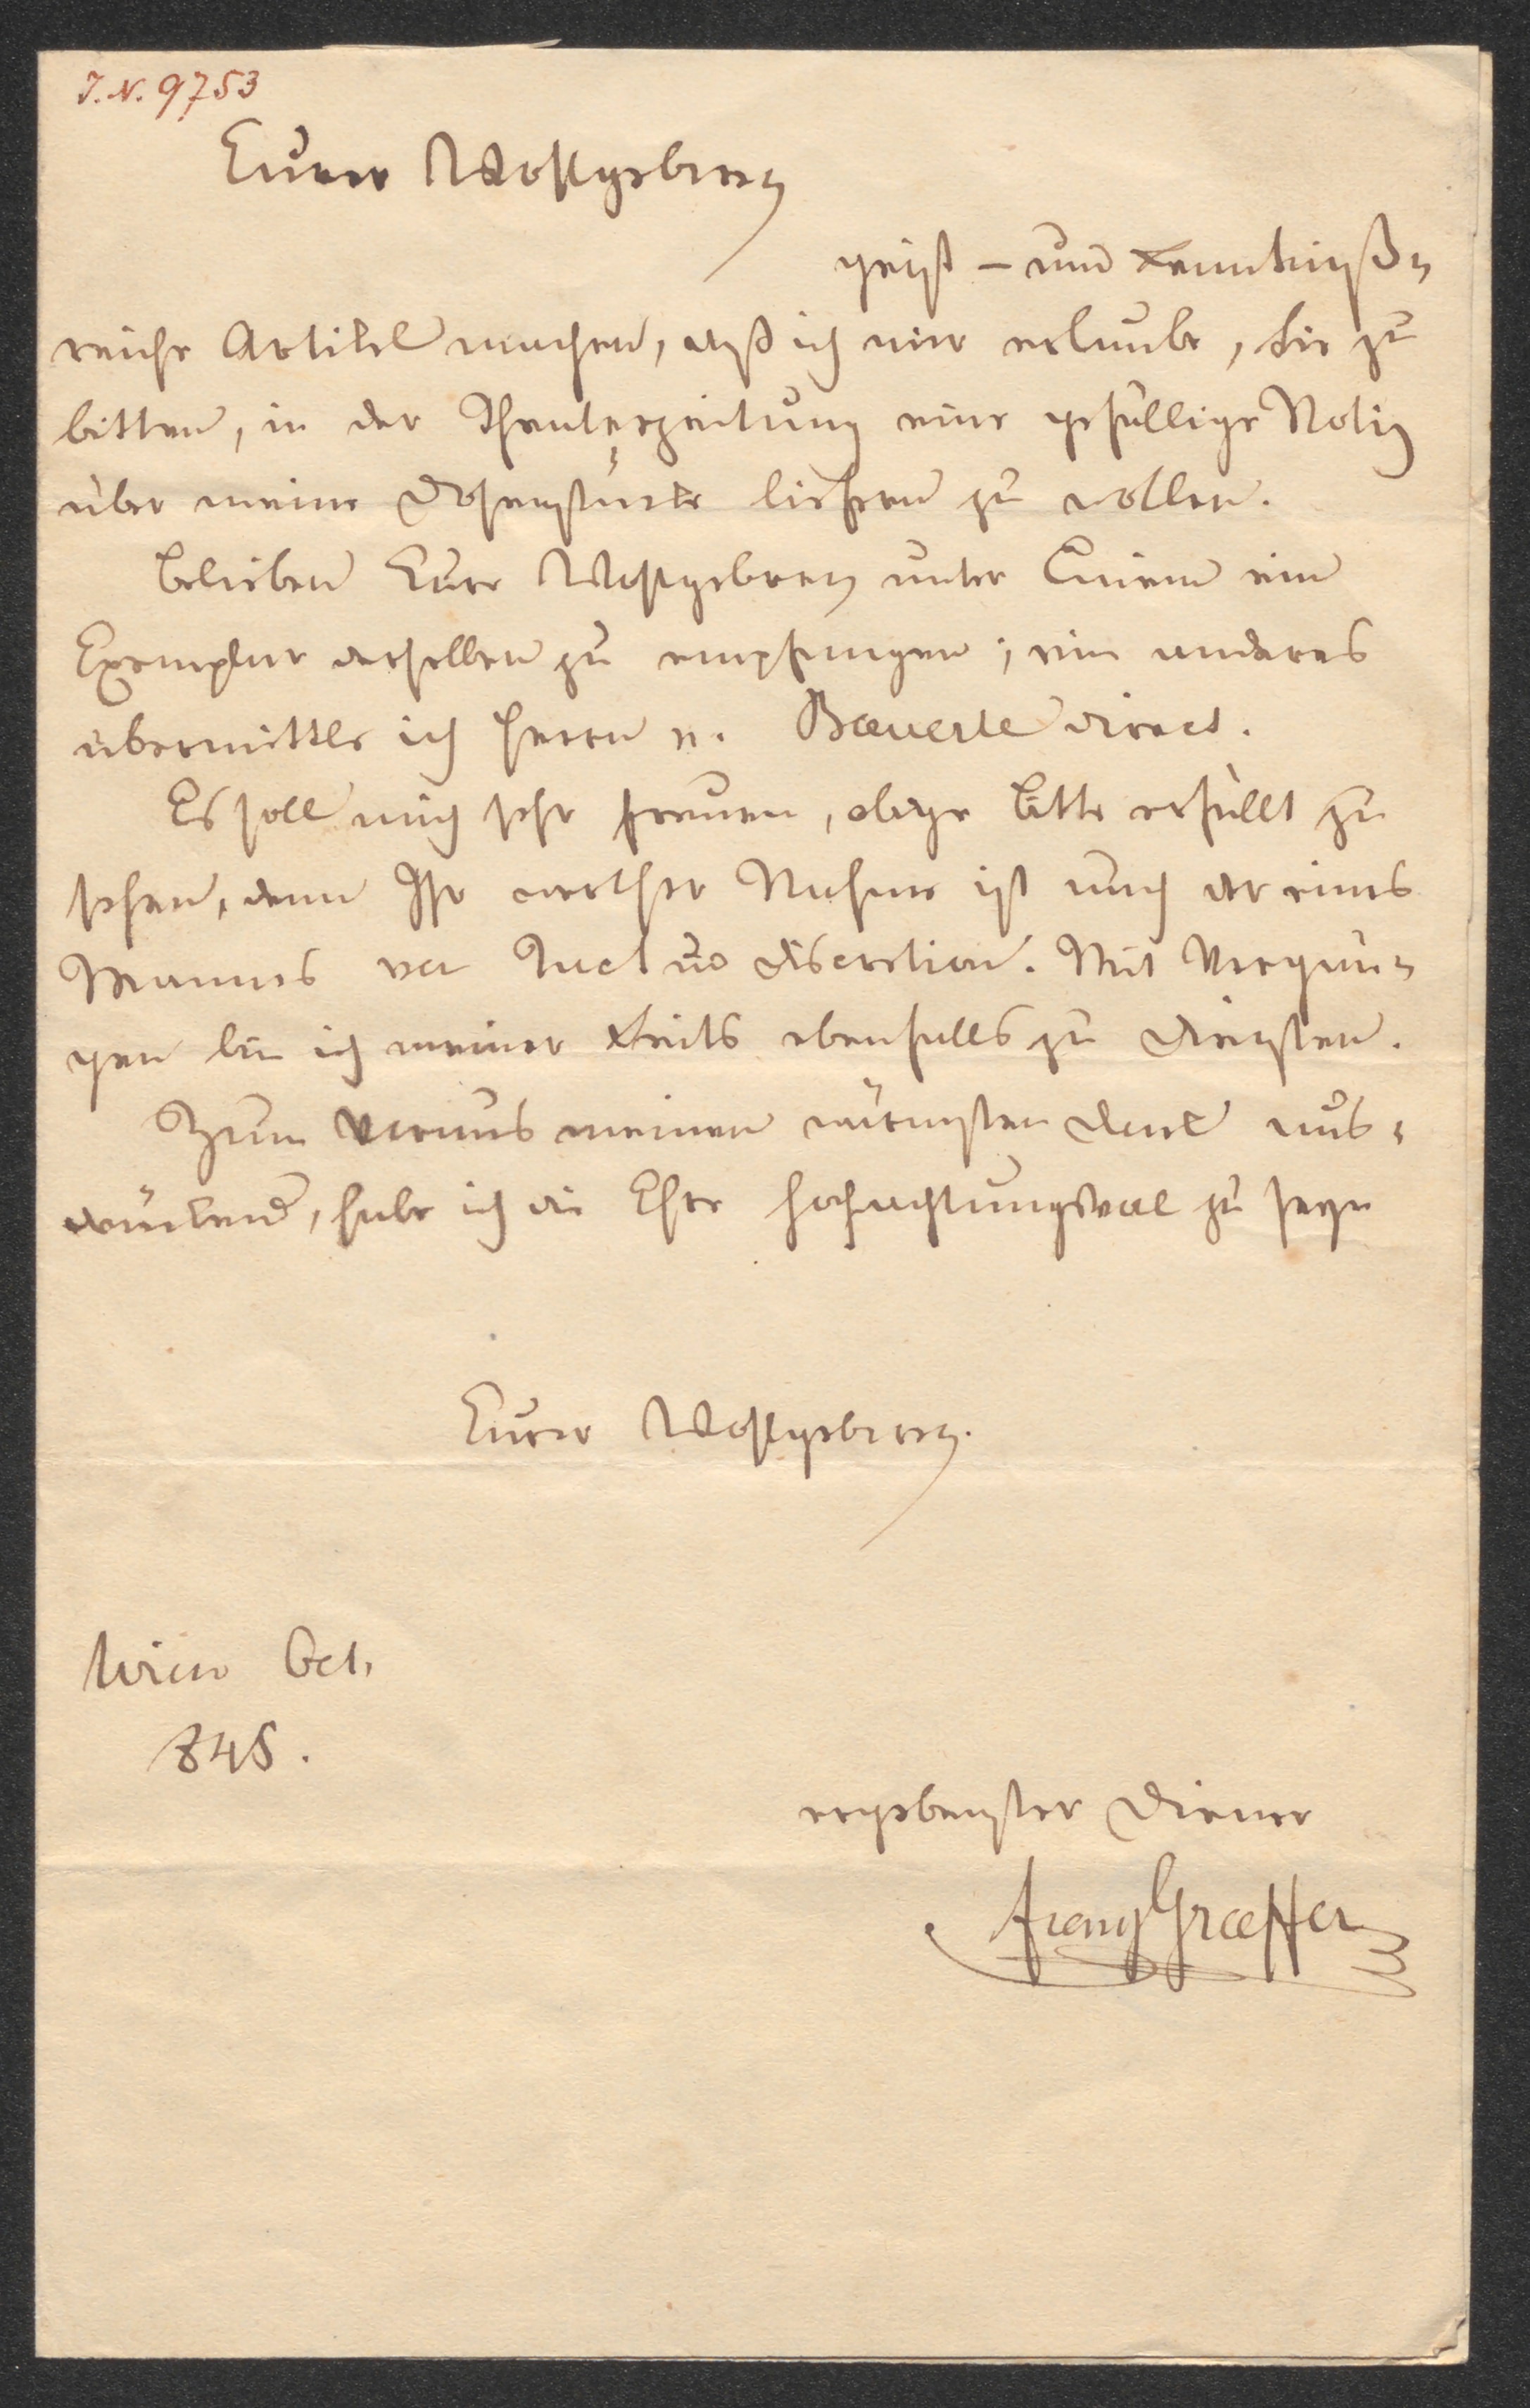 I. N. 9753
Euer Wohlgebren
geist- und kenntniß-
reiche Artikel machen, daß ich mir erlaube, Sie zu
bitten, in der Theaterzeitung eine gefällige Notiz
über meine Dosenstücke liefern zu wollen.
Belieben Euer Wohlgebren unter Einem ein
Exemplar derselben zu empfangen; ein anderes
übermittle ich Herrn v. Baeuerle direct.
Es soll mich sehr freuen, obige Bitte erfüllt zu
sehen, denn Ihr werther Nahme ist auch der eines
Mannes von Tact u Discretion. Mit Vergnü-
gen bin ich meiner Seits ebenfalls zu Diensten.
Zum Voraus meinen wärmsten Dank aus-
drückend, habe ich die Ehre hochachtungsvoll zu seyn
Euer Wohlgebren.
Wien Oct.
845.
ergebenster Diener
Franz Graeffer